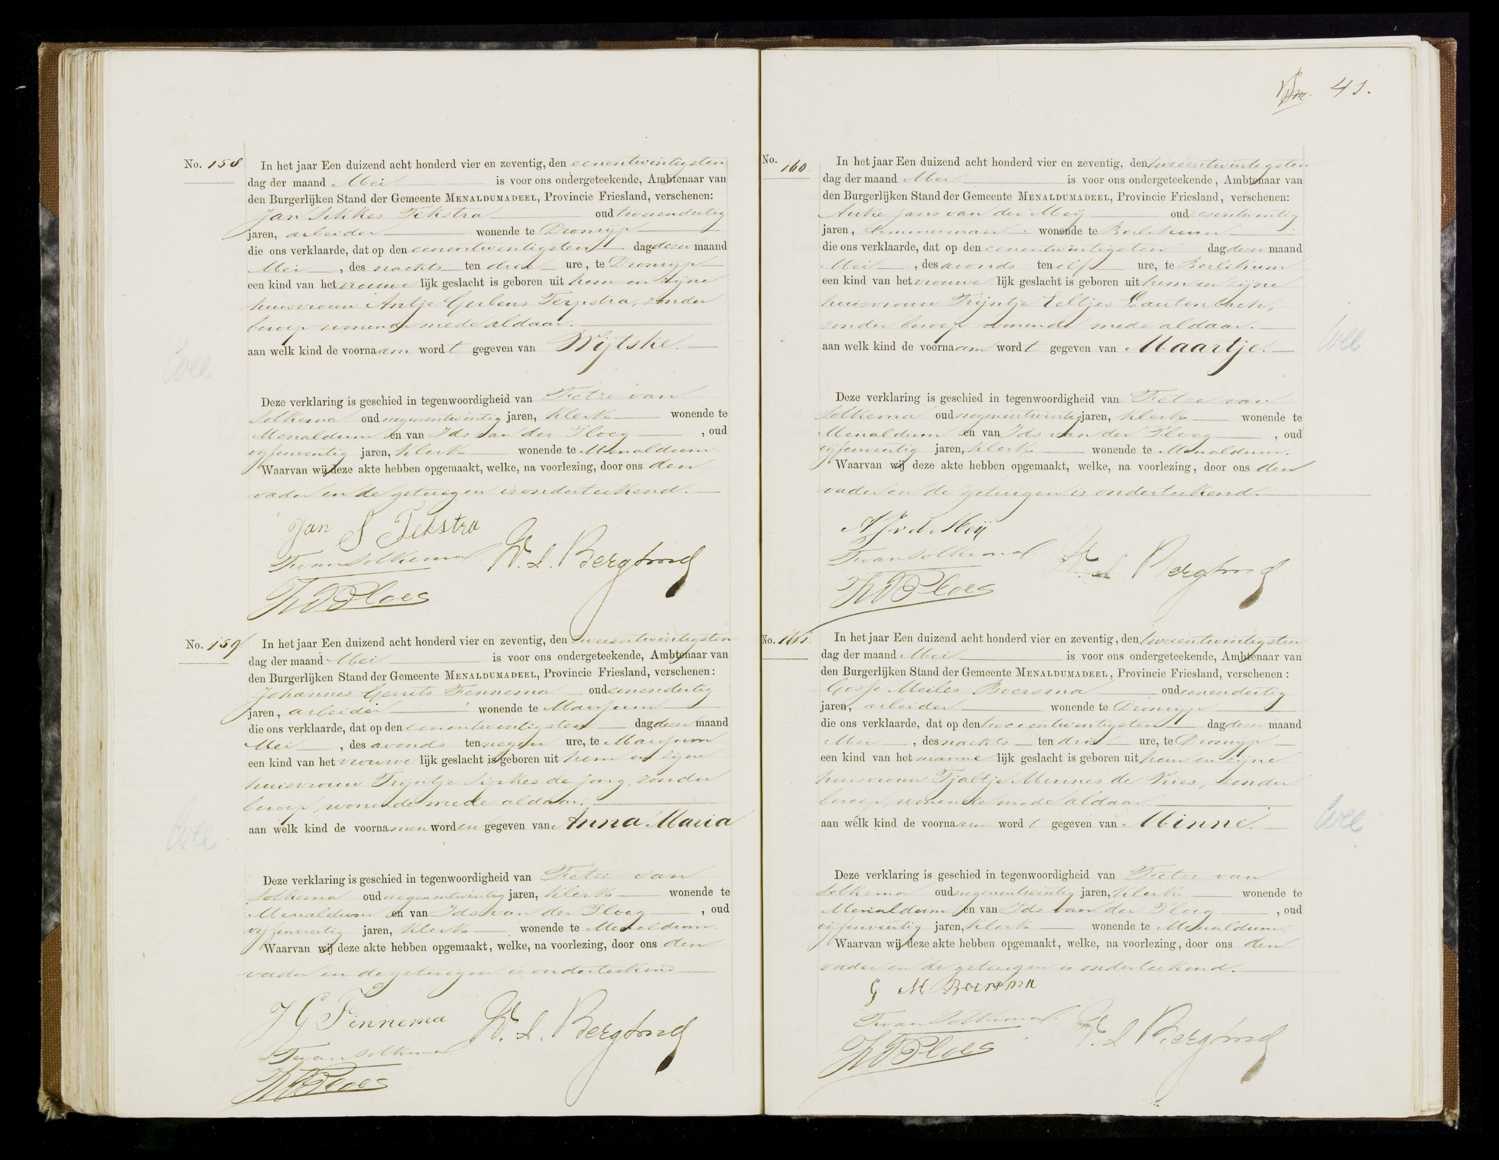 41.
No. 158
In het jaar Een duizend acht honderd vier en zeventig, den eenentwintigsten
dag der maand Mei is voor ons ondergeteekende, Ambtenaar van
den Burgerlijken Stand der Gemeente MENALDUMADEEL, Provincie Friesland, verschenen:
Jan Sikkes Tekstra oud tweeendertig
jaren, arbeider wonende te Dronryp
die ons verklaarde, dat op den eenentwintigsten dag dezer maand
Mei, des nachts ten drie ure, te Dronryp
een kind van het vrouwelijk geslacht is geboren uit hem en zijne
huisvrouw Antje Gerbens Terpstra, zonder
beroep wonende mede aldaar.
aan welk kind de voornaam wordt gegeven van Wijtske.
Deze verklaring is geschied in tegenwoordigheid van Fetze van
Solkema oud negenentwintig jaren, klerk wonende te
Menaldum en van Ids van der Ploeg, oud
vijfenveertig jaren, klerk wonende te Menaldum.
Waarvan wij deze akte hebben opgemaakt, welke, na voorlezing, door ons den
vader en de getuigen is onderteekend.
Jan S Tekstra
F van Solkema W. S. Bergsma
No. 159
In het jaar Een duizend acht honderd vier en zeventig, den tweeentwintigsten
dag der maand Mei is voor ons ondergeteekende, Ambtenaar van
den Burgerlijken Stand der Gemeente MENALDUMADEEL, Provincie Friesland, verschenen:
Johannes Gerrits Fennema oud eenendertig
jaren, arbeider wonende te Marssum
die ons verklaarde, dat op den eenentwintigsten dag dezer maand
Mei, des avonds ten negen ure, te Marssum
een kind van het vrouwelijk geslacht is geboren uit hem en zijne
huisvrouw Trijntje Sirkes de Jong, zonder
beroep, wonende mede aldaar.
aan welk kind de voornamen worden gegeven van Anna Maria
Deze verklaring is geschied in tegenwoordigheid van Fetze van
Solkema oud negenentwintig jaren, klerk wonende te
Menaldum en van Ids van der Ploeg, oud
vijfenveertig jaren, klerk wonende te Menaldum.
Waarvan wij deze akte hebben opgemaakt, welke, na voorlezing, door ons den
vader en de getuigen is onderteekend
J G Fennema
F van Solkema W. S. Bergsma
No. 160
In het jaar Een duizend acht honderd vier en zeventig, den tweeentwintigsten
dag der maand Mei is voor ons ondergeteekende, Ambtenaar van
den Burgerlijken Stand der Gemeente MENALDUMADEEL, Provincie Friesland, verschenen:
Auke Jans van der Meij oud zesentwintig
jaren, timmerman wonende te Berlikum
die ons verklaarde, dat op den eenentwintigsten dag dezer maand
Mei, des avonds ten elf ure, te Berlikum
een kind van het vrouwelijk geslacht is geboren uit hem en zijne
huisvrouw Trijntje Eeltjes Lautenbach,
zonder beroep wonende mede aldaar.
aan welk kind de voornaam wordt gegeven van Maartje.
Deze verklaring is geschied in tegenwoordigheid van Fetze van
Solkema oud negenentwintig jaren, klerk wonende te
Menaldum en van Ids van der Ploeg, oud
vijfenveertig jaren, klerk wonende te Menaldum.
Waarvan wij deze akte hebben opgemaakt, welke, na voorlezing, door ons den
vader en de getuigen is onderteekend.
A J v d Meij
F van Solkema W. S. Bergsma
No. 161
In het jaar Een duizend acht honderd vier en zeventig, den tweeentwintigsten
dag der maand Mei is voor ons ondergeteekende, Ambtenaar van
den Burgerlijken Stand der Gemeente MENALDUMADEEL, Provincie Friesland, verschenen:
Gosse Meiles Boersma oud eenendertig
jaren, arbeider wonende te Dronryp
die ons verklaarde, dat op den tweeentwintigsten dag dezer maand
Mei, des nachts ten drie ure, te Dronryp
een kind van het mannelijk geslacht is geboren uit hem en zijne
huisvrouw Tjaltje Minnes de Vries, zonder
beroep, wonende mede aldaar
aan welk kind de voornaam wordt gegeven van Minne.
Deze verklaring is geschied in tegenwoordigheid van Fetze van
Solkema oud negenentwintig jaren, klerk wonende te
Menaldum en van Ids van der Ploeg, oud
vijfenveertig jaren, klerk wonende te Menaldum.
Waarvan wij deze akte hebben opgemaakt, welke, na voorlezing, door ons den
vader en de getuigen is onderteekend.
G M Boersma
F van Solkema W. S. Bergsma